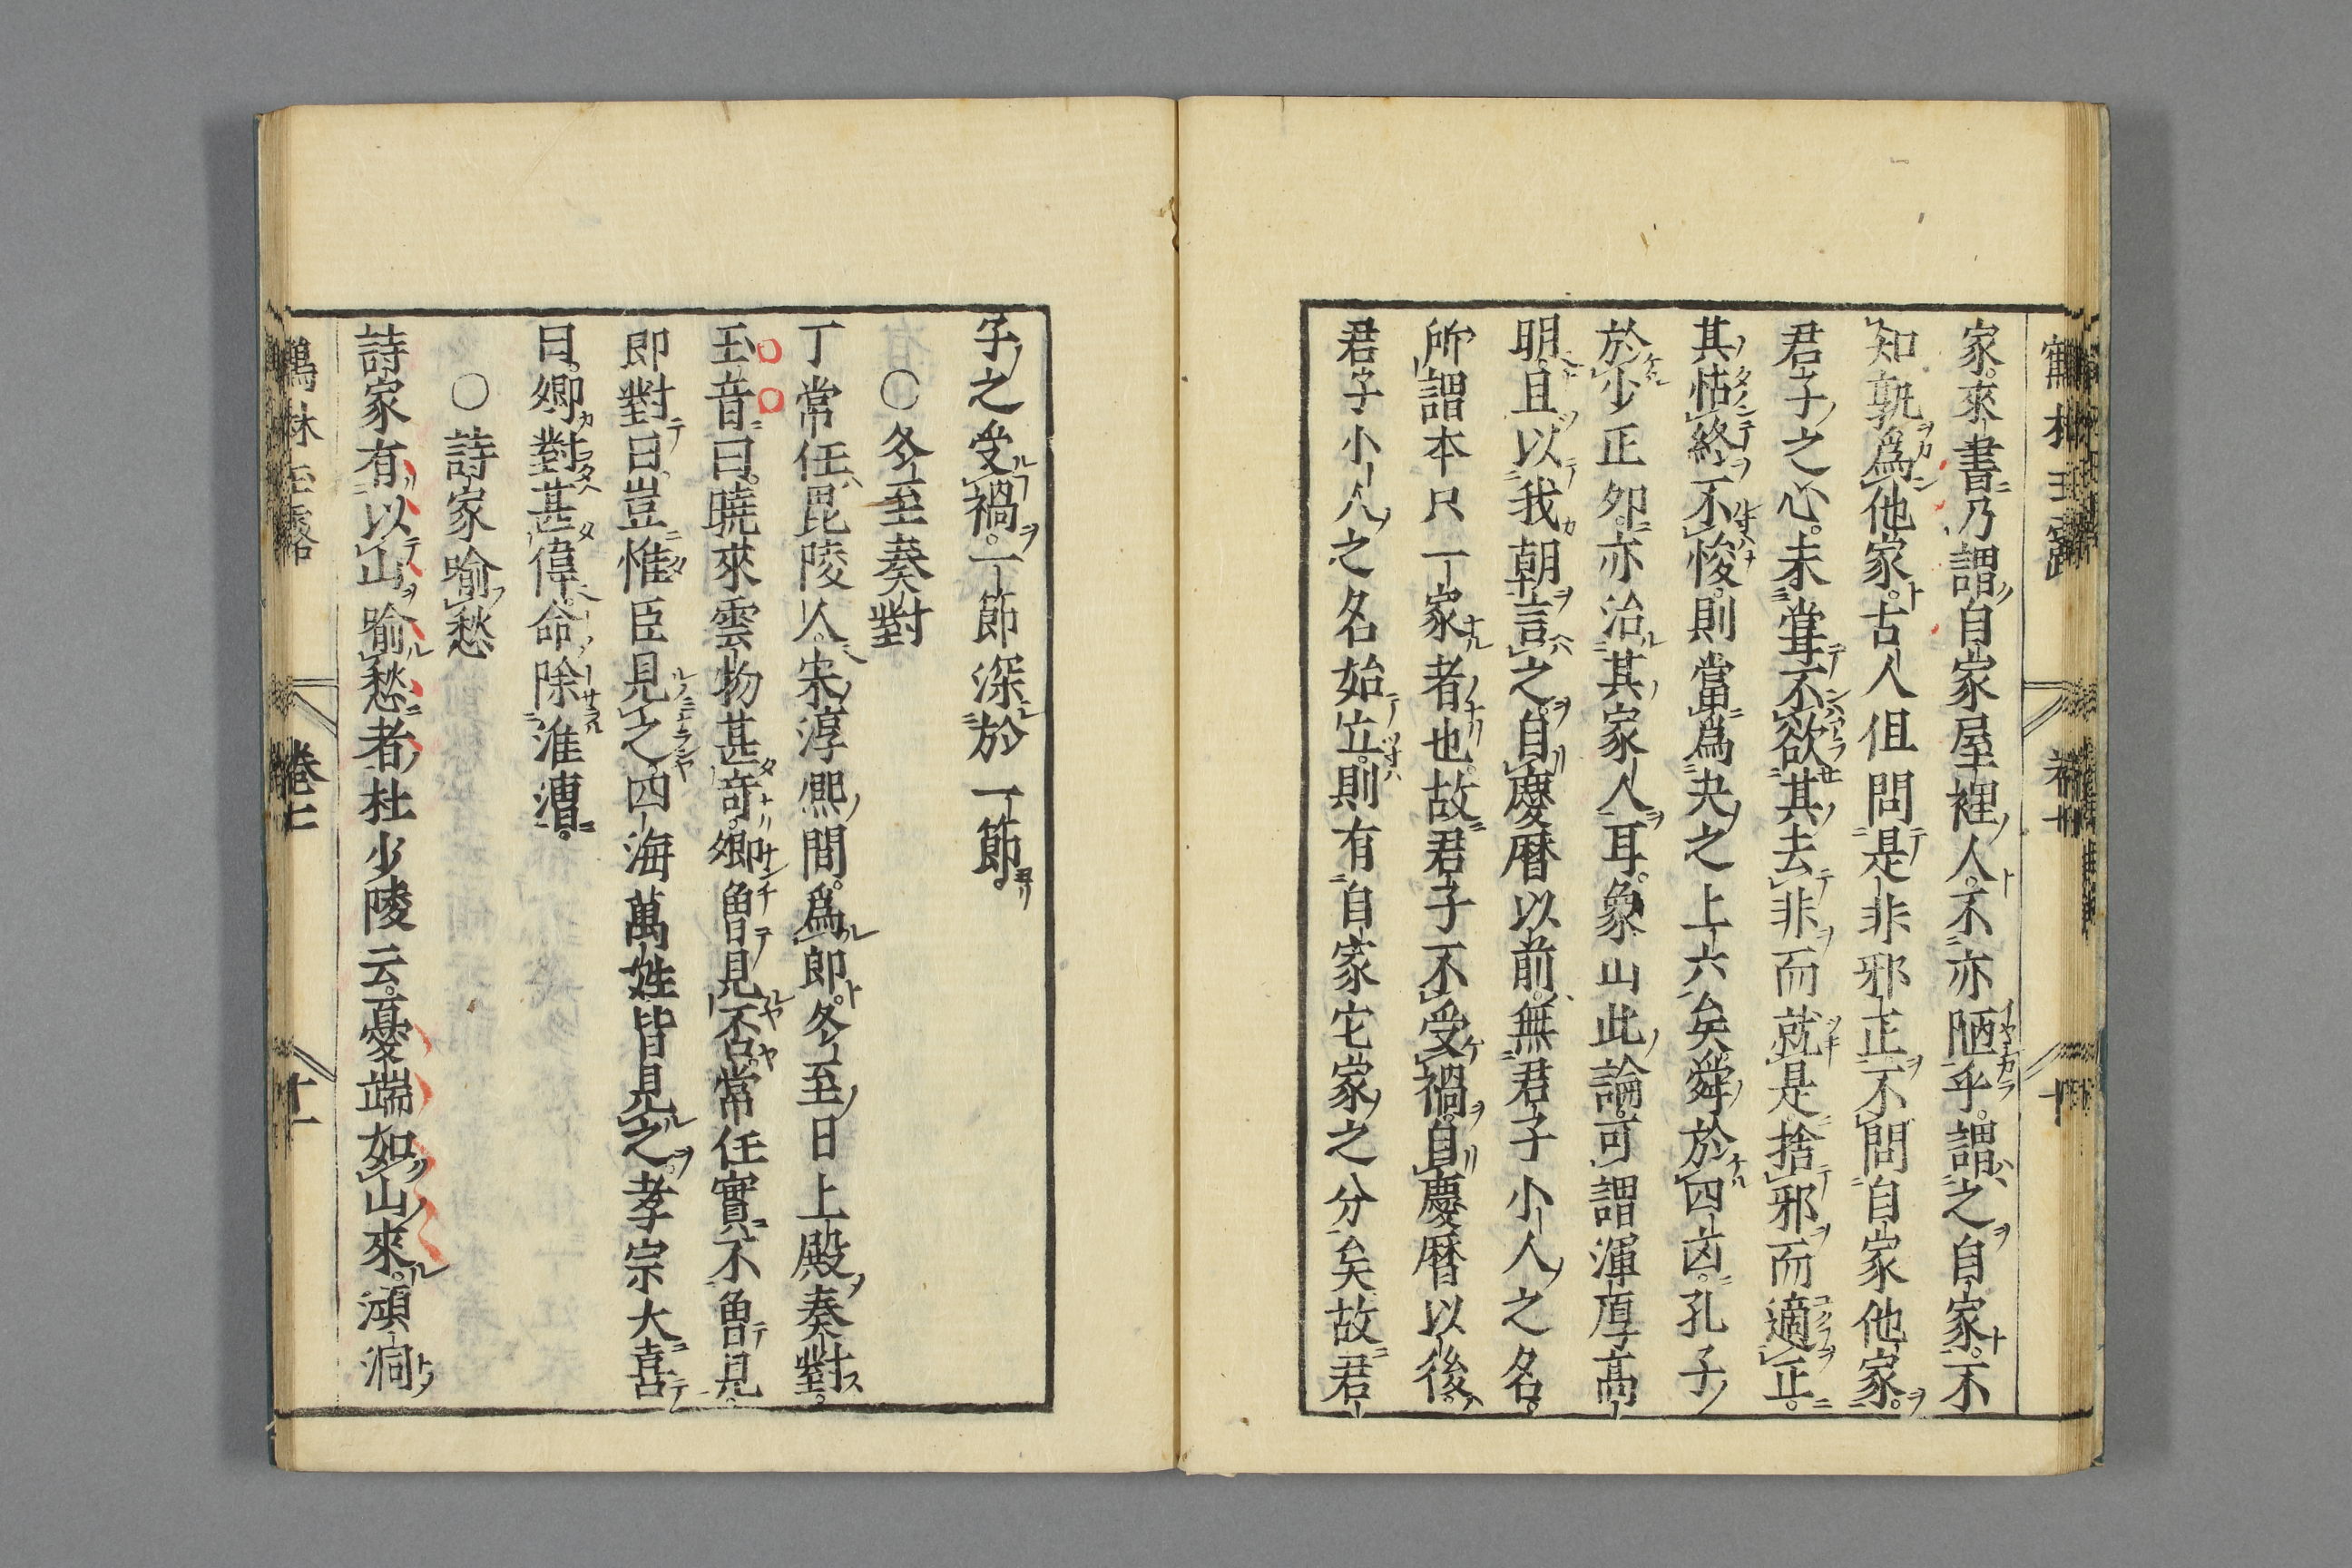 家。來書乃謂自家屋裡人。不亦陋乎。謂之自家。不
知孰爲他家。古人但問是非邪正。不問自家他家。
君子之心。未嘗不欲其去非而就是捨邪而適正。
其怙終不悛。則當爲夬之上六矣舜於四凶。孔子
於少正卯。亦治其家人耳。象山此論。可謂渾厚高
明。且以我朝言之。自慶曆以前。無君子小人之名。
所謂本只一家者也。故君子不受禍。自慶曆以後。
君子小人之名始立。則有自家宅家之分矣故君
子之受禍。一節深於一節。
○冬至奏對
丁常任。毘陵人。宋淳熈間。爲郎。冬至日上殿奏對。
玉音曰。曉來雲物甚竒。卿曾見否。常任實不曾見。
即對曰。豈惟臣見之。四海萬姓皆見之。孝宗大喜
曰。卿對甚偉。命除淮漕。
○詩家喻愁
詩家有以山喻愁者。杜少陵云。憂端如山來。澒洞
鶴林玉露
卷七
十一